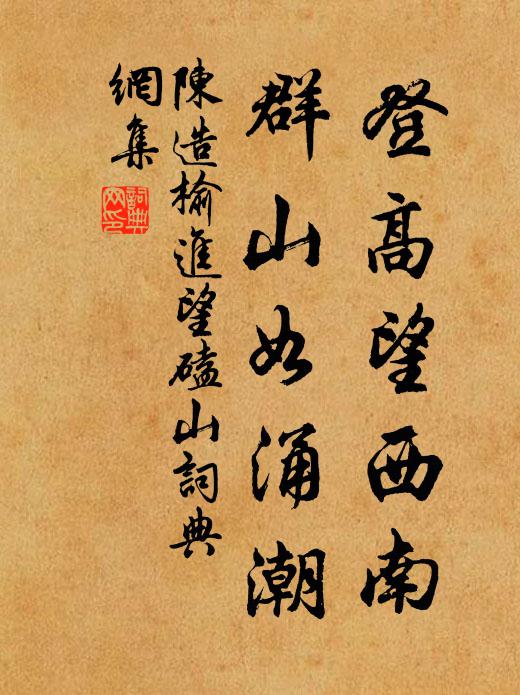 登高望西南
群山如涌潮
陳造榆進望磕山詞典
網集
詞典網印